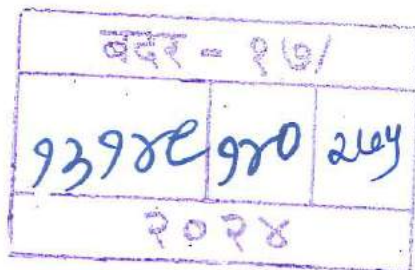 वदर - १७/
१३१४९ १४० २७५
२०२४